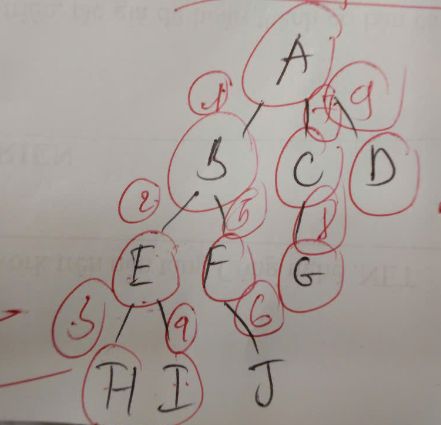 A
1 7 9
B C D
2 5 8
E F G
3 4 6
H I J